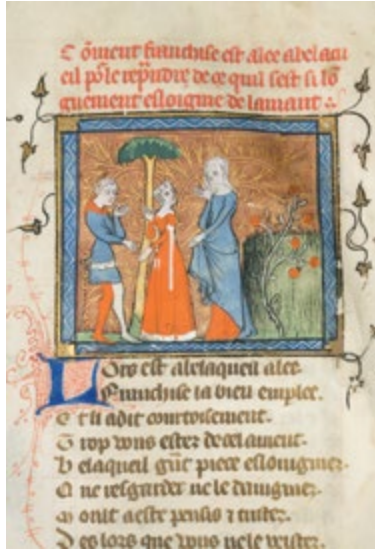 Cōment franchise est alee a belacu
eil po le reprendre de ce quil sest si lō
guement esloigne de lamant
Lors est a belaqueil alee
Franchise la bien emplee
E t li a dit courtoisement
T rop vous estes de cel amant
B elaqueil grāt piece esloigniez
Q ne resgarder ne le daigniez
M oult a este pensis τ tristes
D es lors que vous ne le veistes